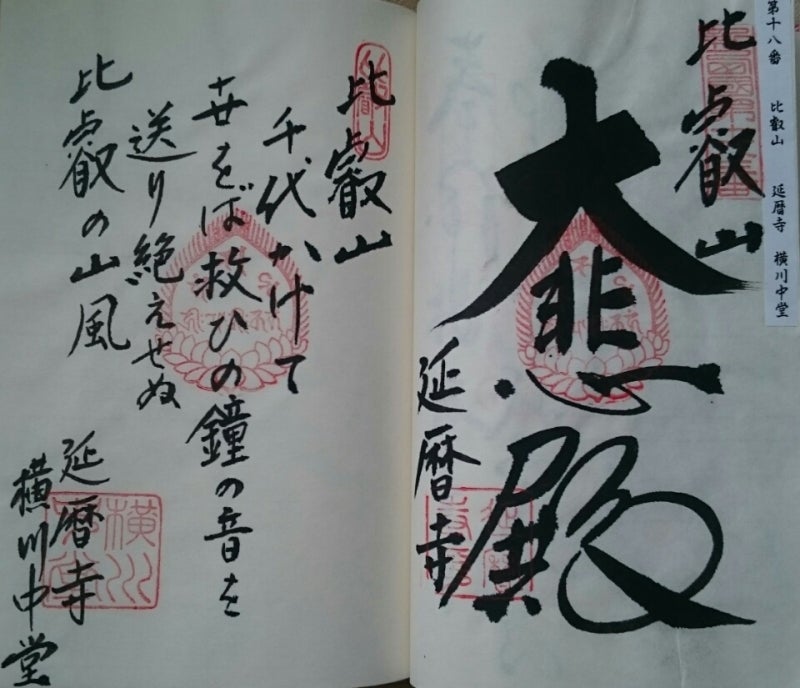 第十八番 比叡山 延暦寺 横川中堂
比叡山
大悲殿
延暦寺
比叡山
千代かけて
世をば救ひの鐘の音を
送り絶えせぬ
比叡の山風
延暦寺
横川中堂